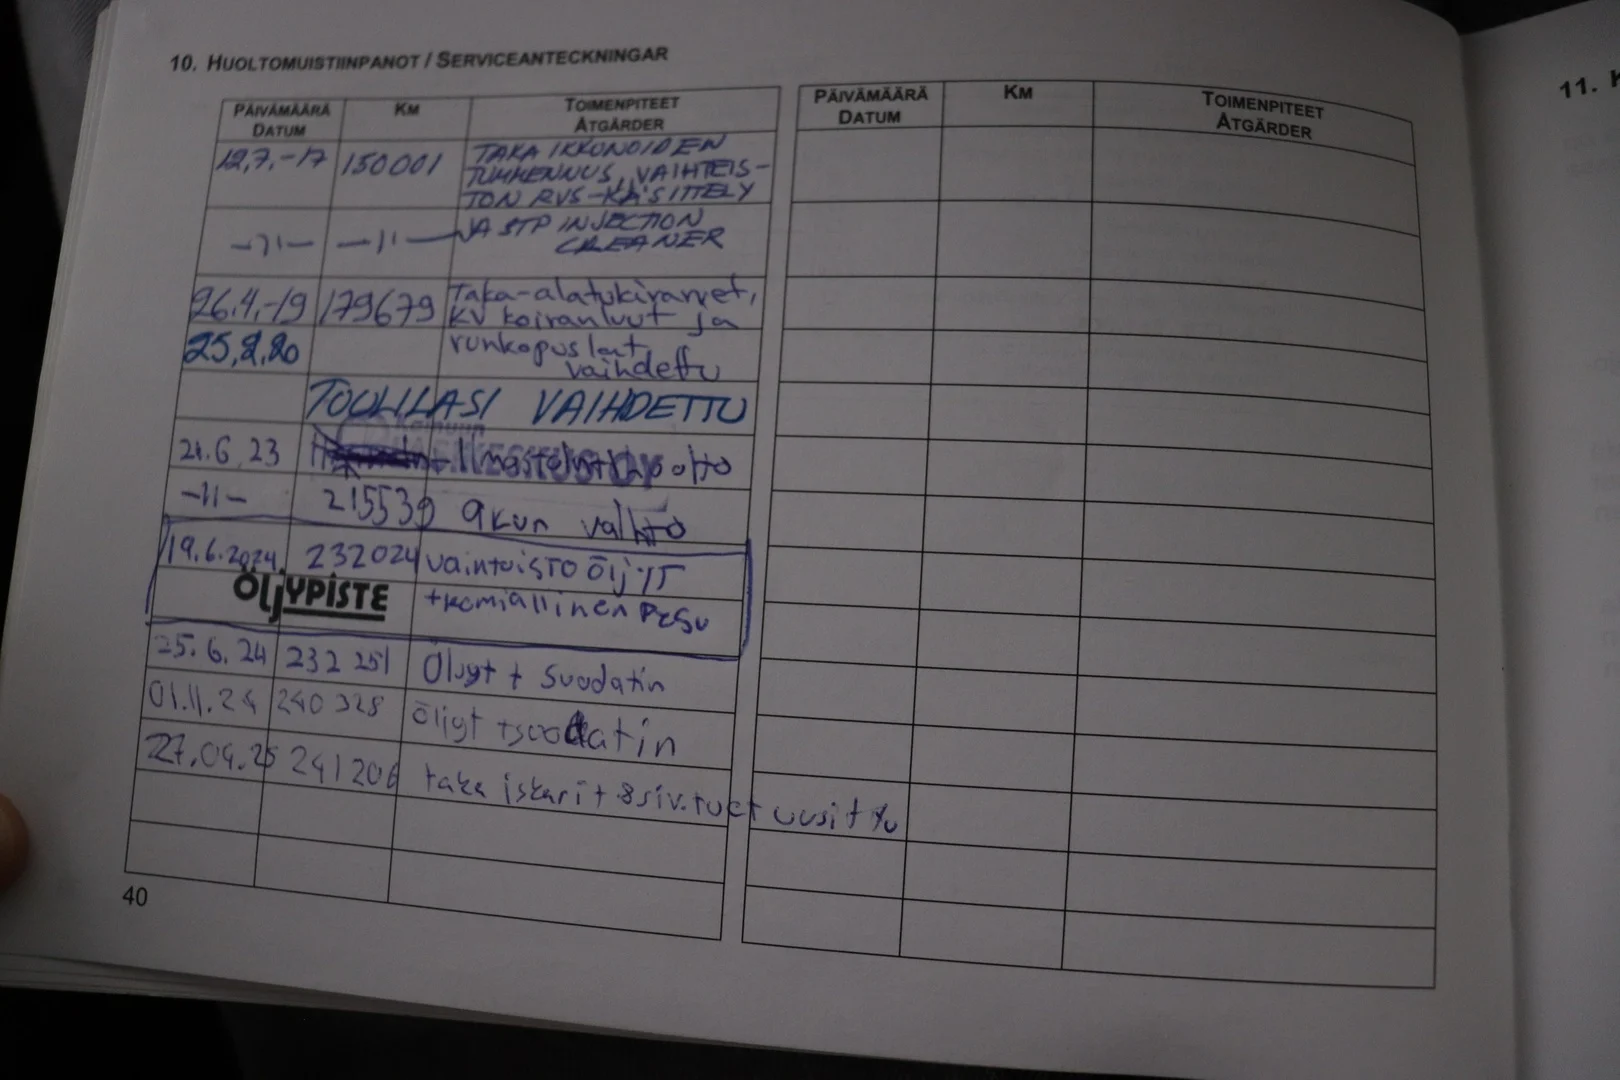 10. HUOLTOMUISTIINPANOT / SERVICEANTECKNINGAR
PÄIVÄMÄÄRÄ KM TOIMENPITEET
DATUM ÅTGÄRDER
12,7,-17 150001 TAKA IKKUNOIDEN
TUMMENNUS, VAIHTEIS-
TON RVS-KÄSITTELY
-11- -11- JA STP INJECTION
CLEANER
26.4.-19 179679 Taka-alatukivarret,
KV koiranluut ja
25,2,20 runkopuslat
vaihdettu
TUULILASI VAIHDETTU
Kainuun
21.6.23 Ilmastointihuolto
-11- 215539 akun vaihto
19.6.2024 232024 vaihteisto öljyt
ÖLJYPISTE +kemiallinen pesu
25.6.24 232 251 Öljyt + Suodatin
01.11.24 240 328 öljyt +suodatin
27.04.25 241206 taka iskarit + 8siv.tuet uusittu
40
PÄIVÄMÄÄRÄ KM TOIMENPITEET
DATUM ÅTGÄRDER
11.